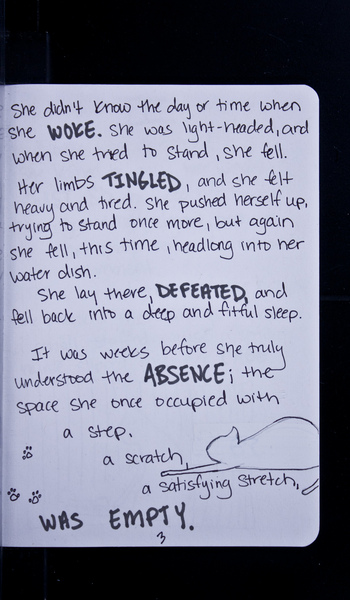 She didn't know the day or time when
she WOKE. She was light-headed, and
when she tried to stand, she fell.
Her limbs TINGLED, and she felt
heavy and tired. She pushed herself up,
trying to stand once more, but again
she fell, this time, headlong into her
water dish.
She lay there, DEFEATED, and
fell back into a deep and fitful sleep.
It was weeks before she truly
understood the ABSENCE; the
space she once occupied with
a step,
a scratch,
a satisfying stretch,
WAS EMPTY.
3